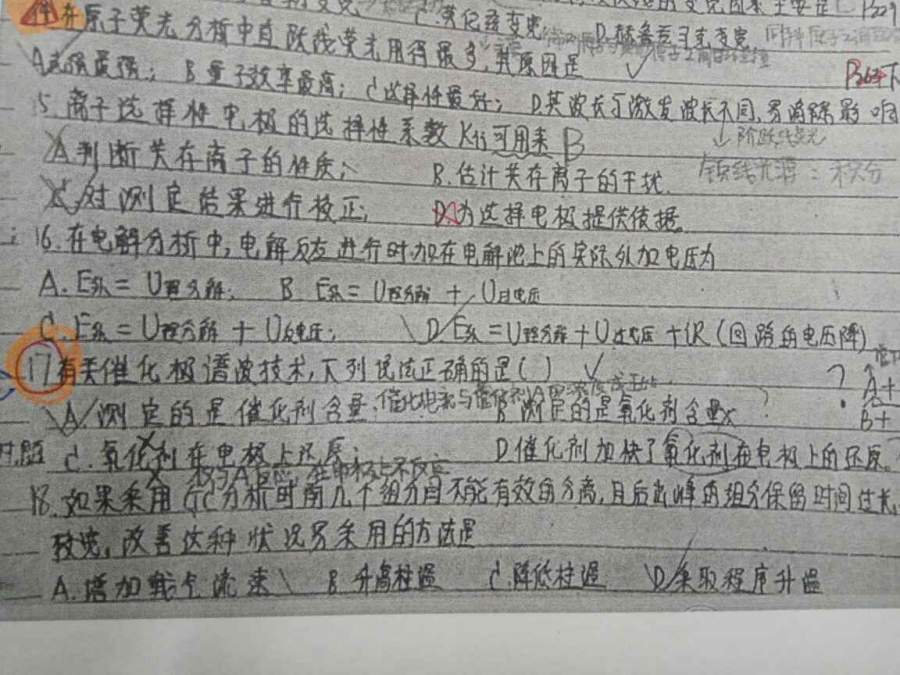 C.劳伦兹变宽
14.在原子荧光分析中直跃线荧光用得最多,其原因是
A.光强最强; B.量子效率最高; C.选择性最好; D.其波长与激发波长不同,易消除影响
15.离子选择性电极的选择性系数Kij可用来 B
↓阶跃线荧光
A.判断共存离子的性质; B.估计共存离子的干扰. 锐线光谱:积分
C.对测定结果进行校正; D.为选择电极提供依据.
16.在电解分析中,电解反应进行时,加在电解池上的实际外加电压为
A.E外=U理分解; B.E外=U理分解+U过电压
C.E外=U理分解+U反电压; D.E外=U理分解+U过电压+iR(回路的电压降)
17.有关催化极谱波技术,下列说法正确的是( )
A.测定的是催化剂含量. B.测定的是氧化剂含量x ?
A+
B+
C.氧化剂在电极上还原; D.催化剂加快了氧化剂在电极上的还原.
18.如果采用GC分析时前几个组分间不能有效的分离,且后出峰的组分保留时间过长,
较宽,改善这种状况易采用的方法是
A.增加载气流速 B.升高柱温 C.降低柱温 D.采取程序升温